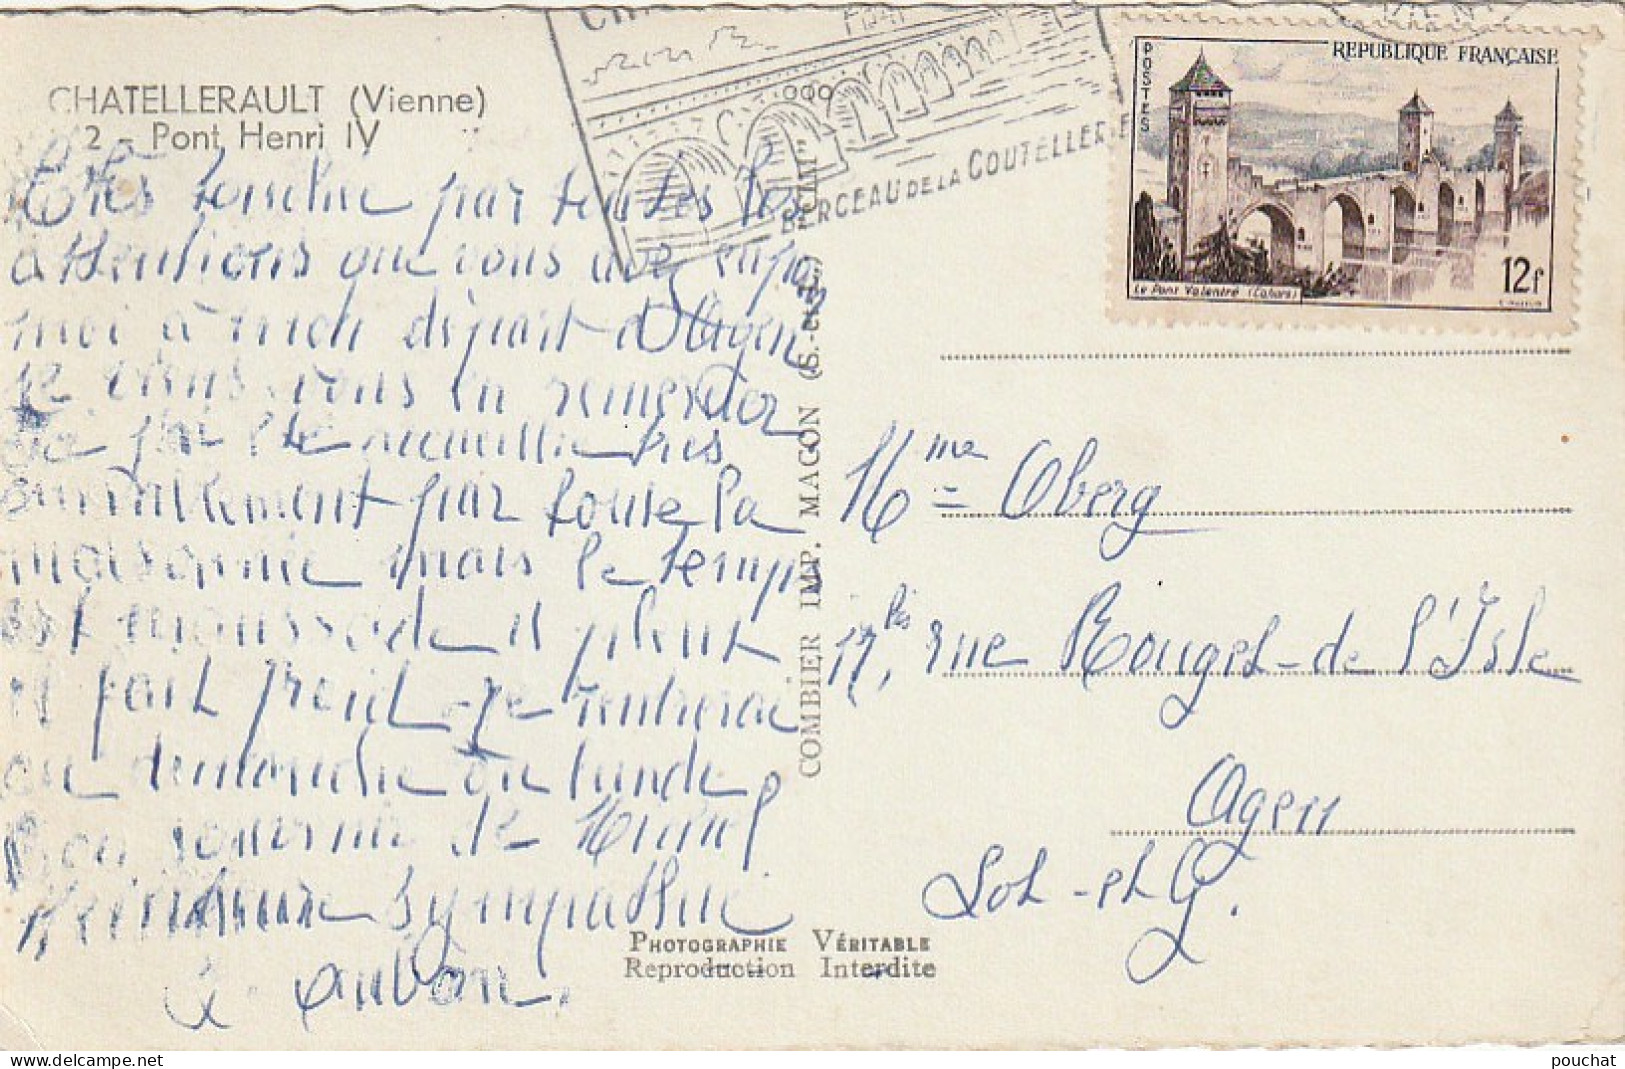 CHATELLERAULT (Vienne)
2 - Pont Henri IV
BERCEAU DE LA COUTELLERIE
POSTES
REPUBLIQUE FRANÇAISE
Le Pont Valentré (Cahors)
12f
Très touchée par toutes les
attentions que vous avez
moi à mon départ d'Agen
je viens vous en remercier
j'ai été recueillie très
par toute la
maisonnée mais le temps
est maussade il pleut
il fait froid - je rentrerai
ou dimanche ou lundi
Bon souvenir de
sympathie
COMBIER IMP. MACON (S.-et-L.)
"CIM"
Mme Oberg
17 bis, rue Rouget-de l'Isle
Agen
Lot-et-G.
PHOTOGRAPHIE VÉRITABLE
Reproduction Interdite
pouchat